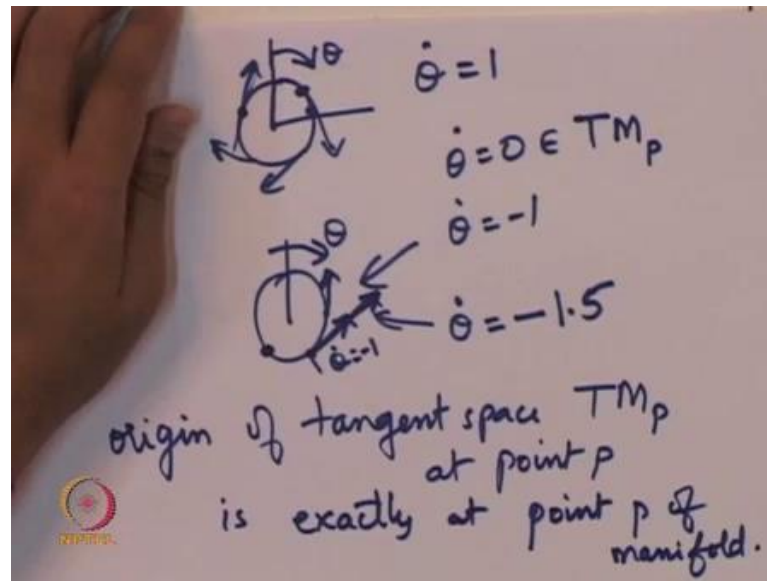 θ
θ̇ = 1
θ̇ = 0 ∈ TMₚ
θ̇ = -1
θ
θ̇ = -1.5
θ̇=-1
origin of tangent space TMₚ
at point p
is exactly at point p of
manifold.
NPTEL